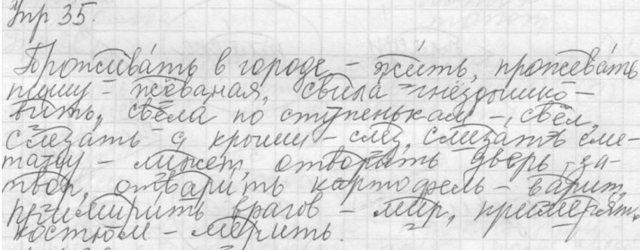 Упр 35.
Проживать в городе – жить, прожевать
пищу – жёваная, свила гнёздышко –
вить, свела по ступенькам – свёл,
слезать с крыши – слез, слизать сме-
тану – лижет, отворить дверь – за-
твор, отварить картофель – варит,
примирить врагов – мир, примерять
костюм – мерить.